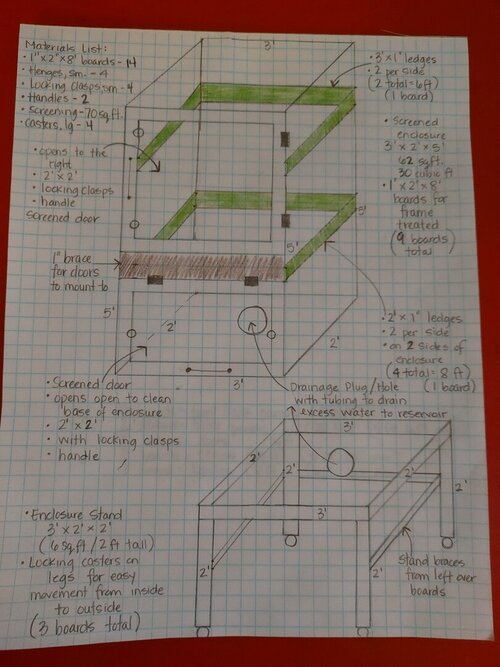 Materials List:
• 1"x 2"x 8' boards - 14
• Henges, sm. - 4
• Locking clasps, sm - 4
• Handles - 2
• Screening - 70 sq.ft.
• Casters, lg - 4
• opens to the right
• 2' x 2'
• locking clasps
• handle
Screened door
1" brace
for doors
to mount to
3'
• 3' x 1" ledges
• 2 per side
(2 total = 6 ft)
(1 board)
• Screened
enclosure
3' x 2' x 5'
62 sq.ft.
30 cubic ft
• 1" x 2" x 8'
boards for
frame
treated
(9 boards
total)
5'
5'
5'
2'
2'
3'
• 2' x 1" ledges
• 2 per side
• on 2 sides of
enclosure
(4 total = 8 ft)
(1 board)
• Screened door
• opens open to clean
base of enclosure
• 2' x 2'
• with locking clasps
• handle
Drainage Plug/Hole
with tubing to drain
excess water to reservoir
3'
2'
2'
2'
2'
3'
2'
2'
• Enclosure Stand
3' x 2' x 2'
(6 sq.ft / 2 ft tall)
• Locking casters on
legs for easy
movement from inside
to outside
(3 boards total)
Stand braces
from left over
boards